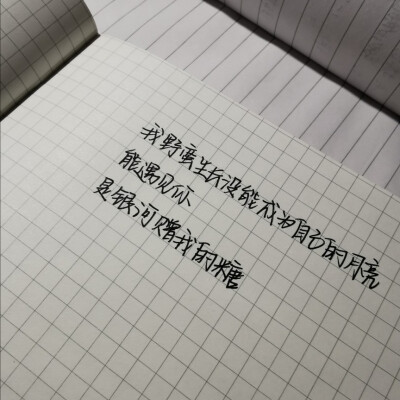 我野蛮生长没能成为自己的月亮
能遇见你
是银河赠我的糖